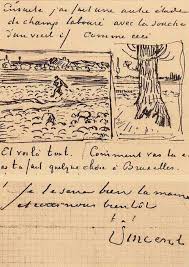 Ensuite j'ai fait une autre étude
de champ labouré avec la souche
d'un vieil if comme ceci
Et voilà tout. Comment vas tu e
as tu fait quelque chose à Bruxelles.
je te serre bien la main
et nous bientôt
t. à t.
Vincent